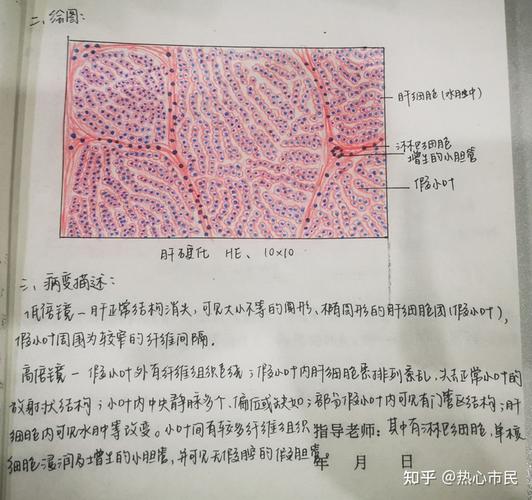 二、绘图:
肝细胞(水肿中)
淋巴细胞
增生的小胆管
假小叶
肝硬化 HE、10×10
三、病变描述:
低倍镜—肝正常结构消失,可见大小不等的圆形、椭圆形的肝细胞团(假小叶),
假小叶周围为较窄的纤维间隔.
高倍镜—假小叶外有纤维组织包绕;假小叶内肝细胞索排列紊乱,失去正常小叶的
放射状结构;小叶内中央静脉多个、偏位或缺如;部分假小叶内可见有门管区结构;肝
细胞内可见水肿等改变。小叶间有较多纤维组织 指导老师:其中有淋巴细胞,单核
细胞浸润及增生的小胆管,并可见无假腔的假胆管。年 月 日
知乎 @热心市民